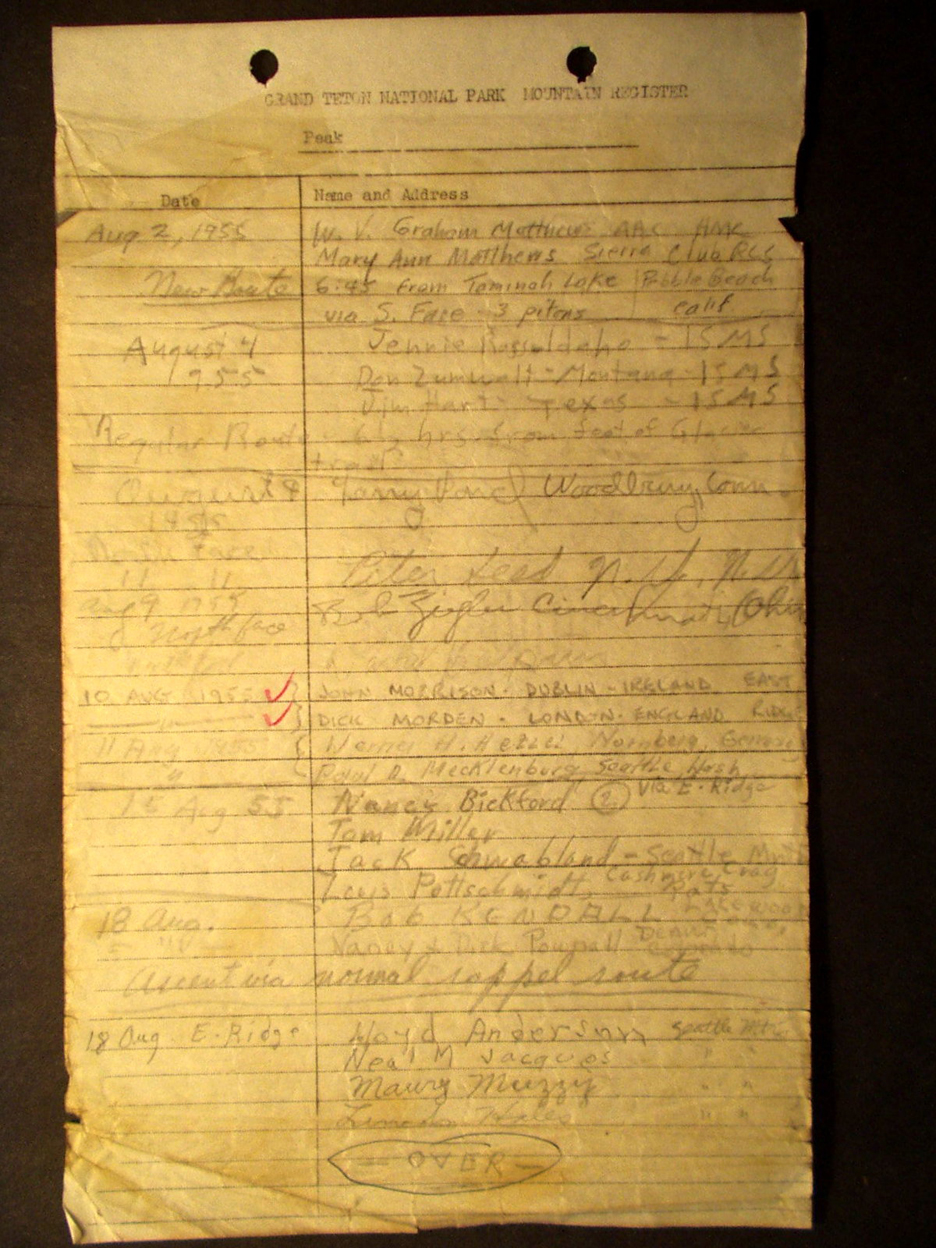 GRAND TETON NATIONAL PARK MOUNTAIN REGISTER
Peak
Date Name and Address
Aug 2, 1955 W. V. Graham Matthews AAC HMC
Mary Ann Matthews Sierra Club RCS
New Route 6:45 from Taminah Lake Pebble Beach
via S. Face - 3 pitons calif.
August 4 Jennie - ISMS
1955 Don Zumwalt - Montana - ISMS
Jim Hart - Texas - ISMS
Regular Route - 6½ hrs. from foot of Glacier
August 8 Woodbury, Conn.
1955
North Face
" " Peter N.Y., N.Y.
Aug 9 1955 Bob Ziegler Cincinnati, Ohio
North face
10 AUG 1955 JOHN MORRISON - DUBLIN - IRELAND EAST
" DICK MORDEN - LONDON - ENGLAND RIDGE
11 Aug 1955 Werner H. Nurnberg, Germany
" Paul R. Mecklenburg, Seattle Wash
15 Aug 55 Nancy Bickford (2) via E. Ridge
Tom Miller
Jack Schwabland - Seattle Mnts
Louis Pottschmidt, Cashmere Crag Rats
18 Aug. Bob KENDALL Lakewood
" Nancy & Dick Pownall Denver Colorado
Ascent via normal rappel route
18 Aug E. Ridge Lloyd Anderson Seattle Mtrs
Neal M Jacques " "
Maury Muzzy " "
" "
OVER